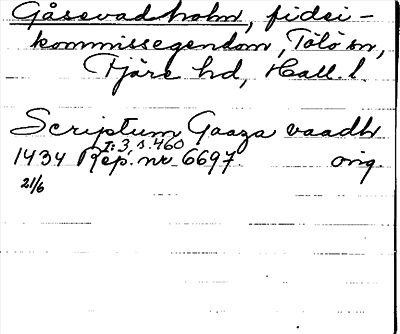 Gåsevadholm, fidei-
kommissegendom, Tölö sn,
Fjäre hd, Hall. l.
Scriptum Gaaza vaadh
I:3, s. 460
1434 Rep. nr 6697 orig.
21/6